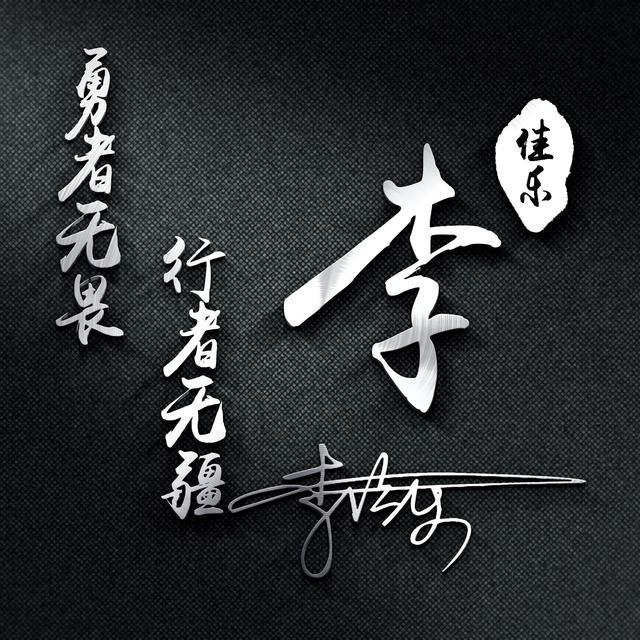 勇者无畏
行者无疆
李
佳乐